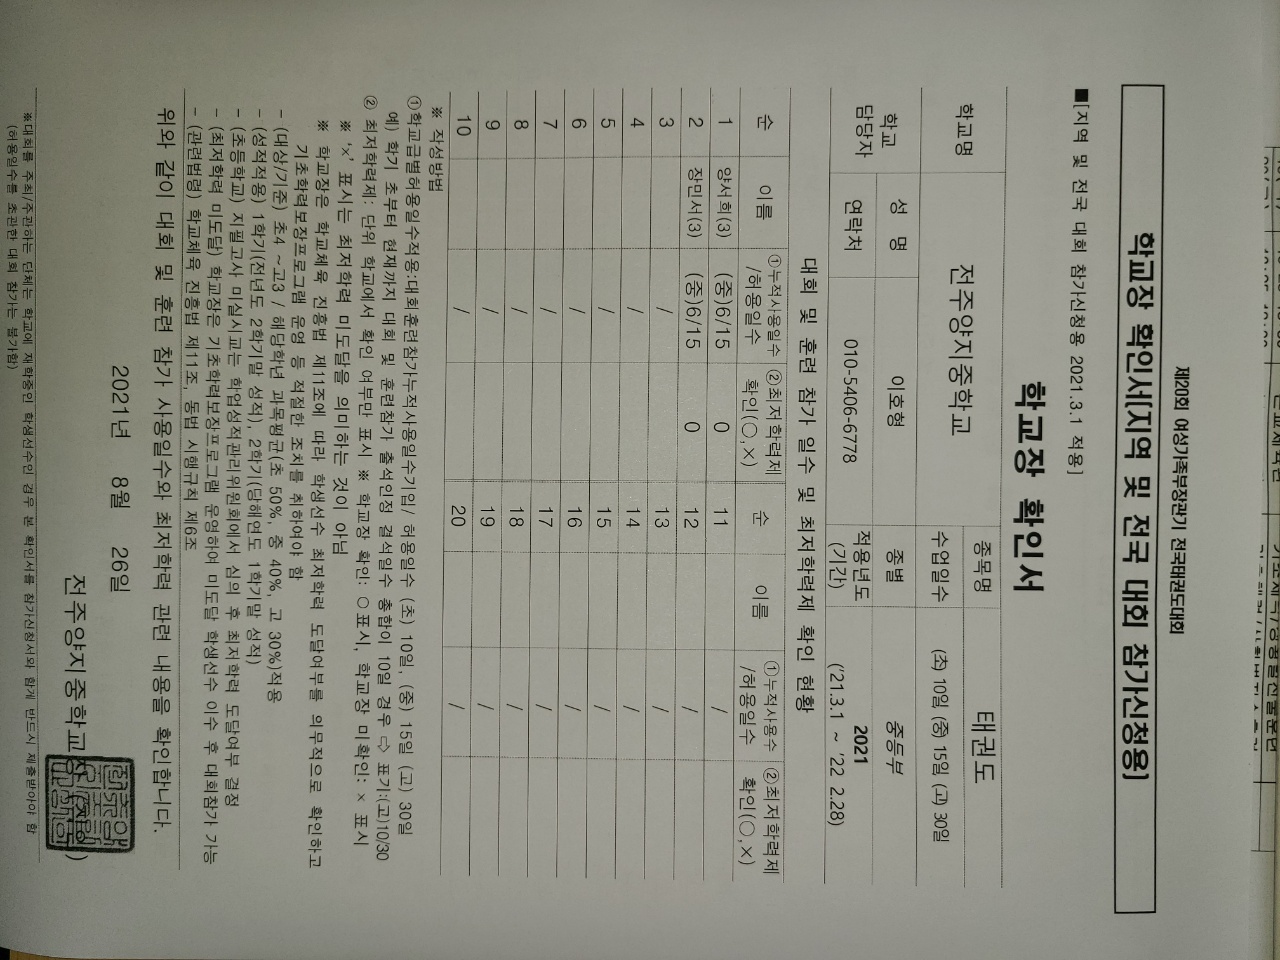 제20회 여성가족부장관기 전국태권도대회
학교장 확인서[지역 및 전국 대회 참가신청용]
■[지역 및 전국 대회 참가신청용 2021.3.1 적용]
학교장 확인서
학교명 전주양지중학교 종목명 태권도
수업일수 (초) 10일 (중) 15일 (고) 30일
학교 담당자 성 명 이호형 종별 중등부
연락처 010-5406-6778 적용년도 (기간) 2021 ('21.3.1 ~ '22 2.28)
대회 및 훈련 참가 일수 및 최저학력제 확인 현황
순 이름 ①누적사용일수 /허용일수 ②최저학력제 확인(○,×) 순 이름 ①누적사용수 /허용일수 ②최저학력제 확인(○,×)
1 양서희(3) (중)6/15 0 11 /
2 장민서(3) (중)6/15 0 12 /
3 / 13 /
4 / 14 /
5 / 15 /
6 / 16 /
7 / 17 /
8 / 18 /
9 / 19 /
10 / 20 /
※ 작성방법
①학교급별허용일수적용:대회훈련참가누적사용일수기입/ 허용일수 (초) 10일, (중) 15일 (고) 30일
예) 학기 초부터 현재까지 대회 및 훈련참가 출석인정 결석일수 총합이 10일 경우 ⇨ 표기:(고)10/30
② 최저학력제: 단위 학교에서 확인 여부만 표시 ※ 학교장 확인: ○표시, 학교장 미확인: × 표시
※ '×' 표시는 최저학력 미도달을 의미하는 것이 아님
※ 학교장은 학교체육 진흥법 제11조에 따라 학생선수 최저학력 도달여부를 의무적으로 확인하고
기초학력보장프로그램 운영 등 적절한 조치를 취하여야 함
- (대상/기준) 초4 ~고3 / 해당학년 과목평균(초 50%, 중 40%, 고 30%)적용
- (성적적용) 1학기(전년도 2학기말 성적), 2학기(당해연도 1학기말 성적)
- (초등학교) 지필고사 미실시교는 학업성적관리위원회에서 심의 후 최저학력 도달여부 결정
- (최저학력 미도달) 학교장은 기초학력보장프로그램 운영하여 미도달 학생선수 이수 후 대회참가 가능
- (관련법령) 학교체육 진흥법 제11조, 동법 시행규칙 제6조
위와 같이 대회 및 훈련 참가 사용일수와 최저학력 관련 내용을 확인합니다.
2021년 8월 26일
전주양지중학교장
※대회를 주최/주관하는 단체는 학교에 재학중인 학생선수인 경우 본 확인서를 참가신청서와 함께 반드시 제출받아야 함
(허용일수를 초과한 대회 참가는 불가함)